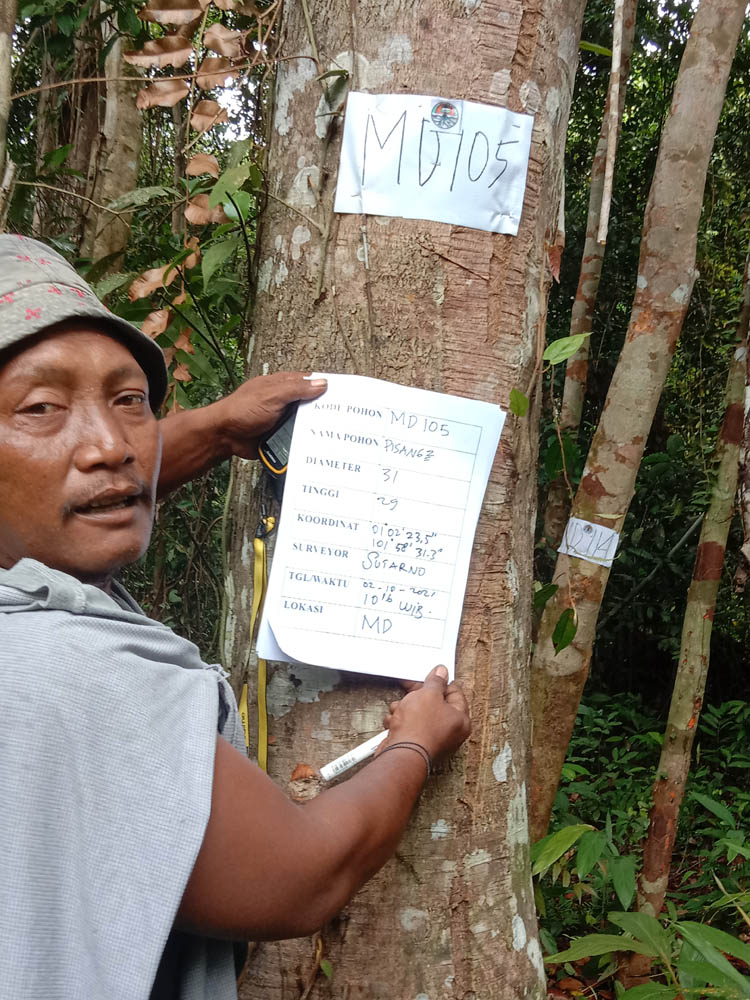 MD105
KODE POHON MD105
NAMA POHON PISANGZ
DIAMETER 31
TINGGI 29
KOORDINAT 01°02'23,5"
101°58'31.3"
SURVEYOR SUTARNO
TGL/WAKTU 02-10-2021
10 16 WIB.
LOKASI MD